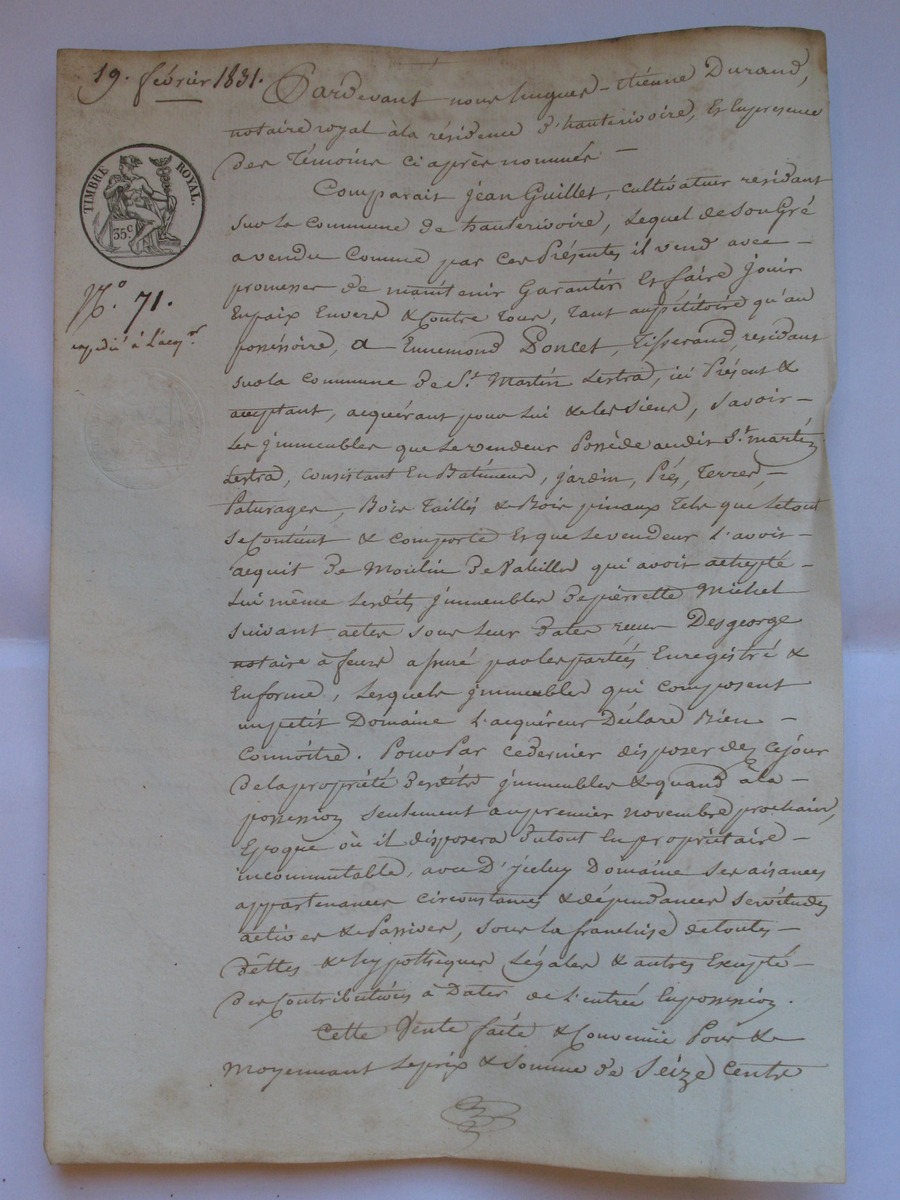 19. février 1831.
Pardevant nous hugues-étienne Durand,
notaire royal à la résidence d'hauterivoire, Et En presence
des Témoins ci après nommés —
Comparait jean Guillet, cultivateur residant
sur la Commune de hauterivoire, Lequel de Son Gré
a vendu Comme par ces Présentes il vend avec —
promesse de maintenir Garantir Et faire jouir
En paix Envers & Contre tous, tant au pétitoire qu'au
possessoire, a Ennemond Poncet, Tisserand, residant
sur la Commune de St. Martin Lestra, ici Présent &
acceptant, acquérant pour Lui & les siens, Savoir —
Les jmmeubles que le vendeur Possède audit St. martin
Lestra, consistant En Batiment, jardin, Prés, Terres, —
Paturages, Bois Taillis & Bois pinaux Tels que le tout
se Contient & comporte Et que le vendeur L'avoit —
acquit de Moulin de qui avoit achepté —
Lui même Lesdits jmmeubles de pierrette Michel
suivant actes sous Leur dates recus Desgeorge
notaire à feurs assuré par les parties Enregistré &
En forme, Lesquels jmmeubles qui composent
un petit Domaine L'acquéreur Déclare Bien —
Connoitre. Pour Par ce dernier disposer dès ce jour
de la propriété desdits jmmeubles & quand à la —
possession seulement au premier novembre prochain,
Epoque où il disposera du tout En propriétaire —
incommutable, avec D'jceluy Domaine Ses aisances
appartenances circonstances & dépendances Servitudes
actives & Passives, sous la franchise de toutes —
dêttes & hypothèques Légales & autres Excepté —
des Contributions à Dater de L'entrée En possession.
Cette Vente faite & Convenüe Pour &
Moyennant Le prix & Somme de Seize Cents
TIMBRE ROYAL.
35c.
No. 71.
expedié à L'acqr.